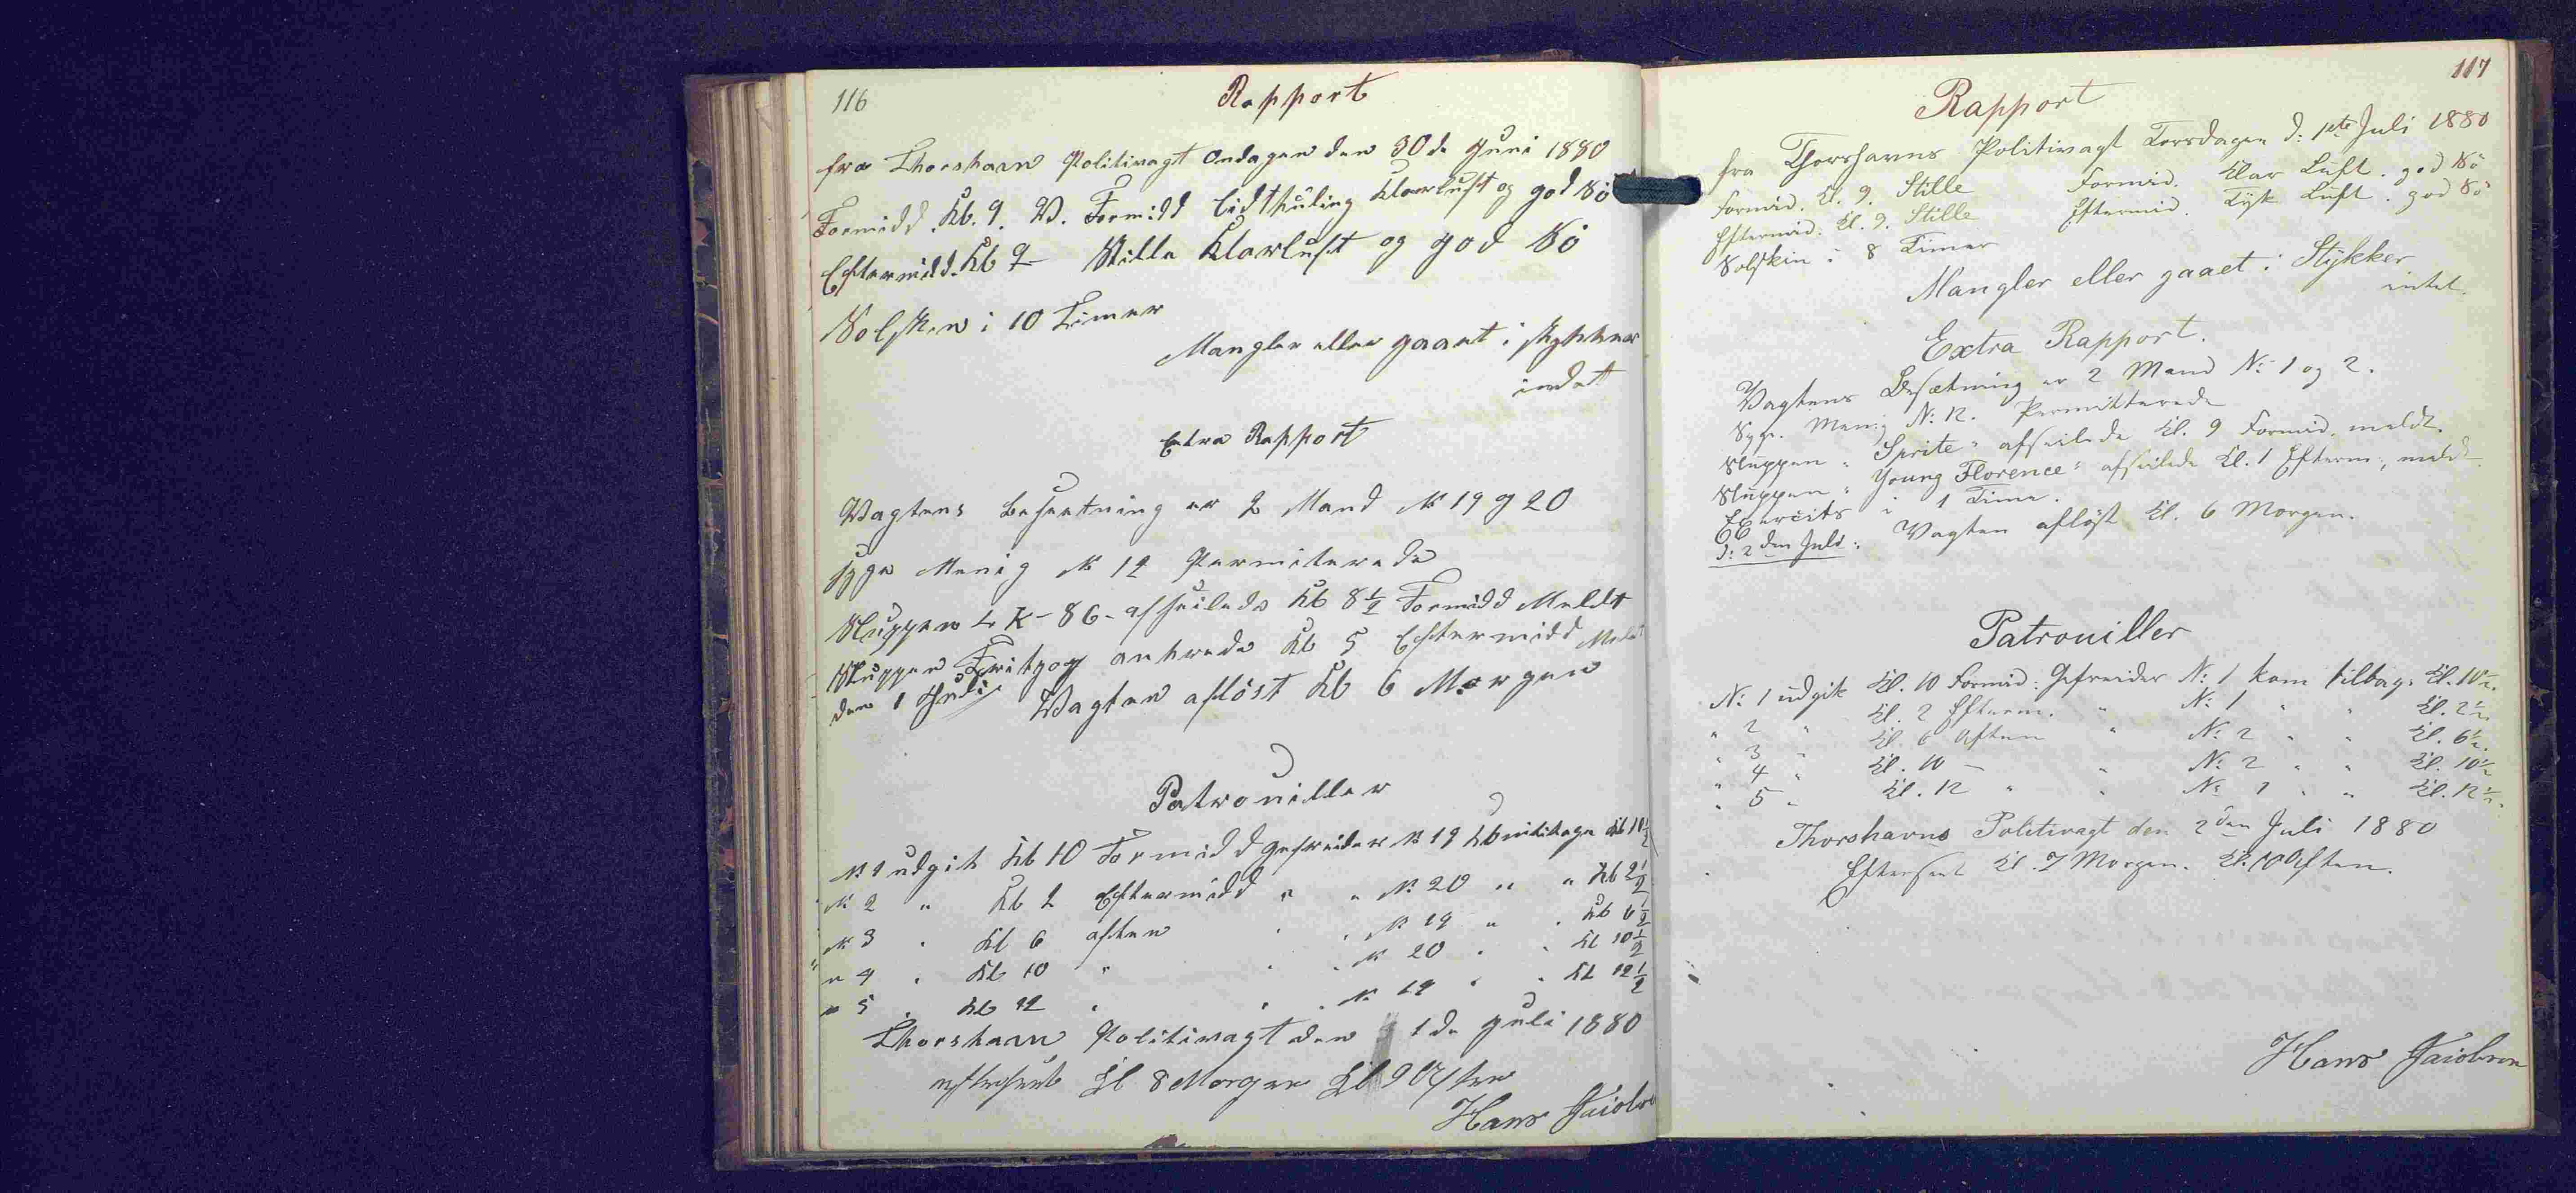 116
Rapport
fra Thorshavn Politivagt Ondagen den 30de Juni 1880
Formidd. Kl. 9. V. Formidd lidt Kuling Klarluft og god Sö
Eftermidd. Kl 9 - Stille Klarluft og god Sö
Solskin i 10 Timer
Mangler eller gaaet i stykker
indet
Extra Rapport
Vagtens besætning er 2 Mand No 19 og 20
syge Menig No 12 Permiterede
Sluppen LK-86- afseilede Kl 8½ Formidd Meldt
Sluppen ankrede Kl 5 Eftermidd Meldt
den 1 Juli Vagten aflöst Kl 6 Morgen
Patrouiller
No 1 udgik Kl 10 Formidd gefreider No 19 Kom tilbage Kl 10½
No 2 " Kl 2 Eftermidd " " No 20 " " Kl 2½
No 3 " Kl 6 aften " " No 19 " " Kl 6½
" 4 " Kl 10 " " " No 20 " " Kl 10½
" 5 " Kl 12 " " " No 19 " " Kl 12½
Thorshavn Politivagt den 1de Juli 1880
efterseet Kl 8 Morgen Kl 9 Aften
Hans Jacobsen
117
Rapport
fra Thorshavns Politivagt Torsdagen d: 1ste Juli 1880
Formid. Kl. 9. Stille Formid. Klar Luft. god Sö
Eftermid. Kl. 9. Stille Eftermid. Tyk Luft. god Sö
Solskin i 8 Timer
Mangler eller gaaet i Stykker
intet.
Extra Rapport.
Vagtens Besætning er 2 Mand No 1 og 2.
Syge. Menig No: 12. Permitterede
Sluppen "Sprite" afseilede Kl. 9 Formid. meldt.
Sluppen "Young Florence" afseilede Kl. 1 Efterm:, meldt.
Exercits i 1 Time.
d: 2den Juli: Vagten aflöst Kl. 6 Morgen.
Patrouiller
No: 1 udgik Kl. 10 Formid: Gefreider No: 1 kom tilbage Kl. 10½.
" 2 " Kl. 2 Efterm. " No: 1 " " Kl. 2½
" 3 " Kl. 6 Aften " No: 2 " " Kl. 6½.
" 4 " Kl. 10 - " No: 2 " " Kl. 10½
" 5 " Kl. 12 " " No: 1 " " Kl. 12½.
Thorshavns Politivagt den 2den Juli 1880
Efterseet Kl. 7 Morgen. Kl. 10 Aften.
Hans Jacobsen